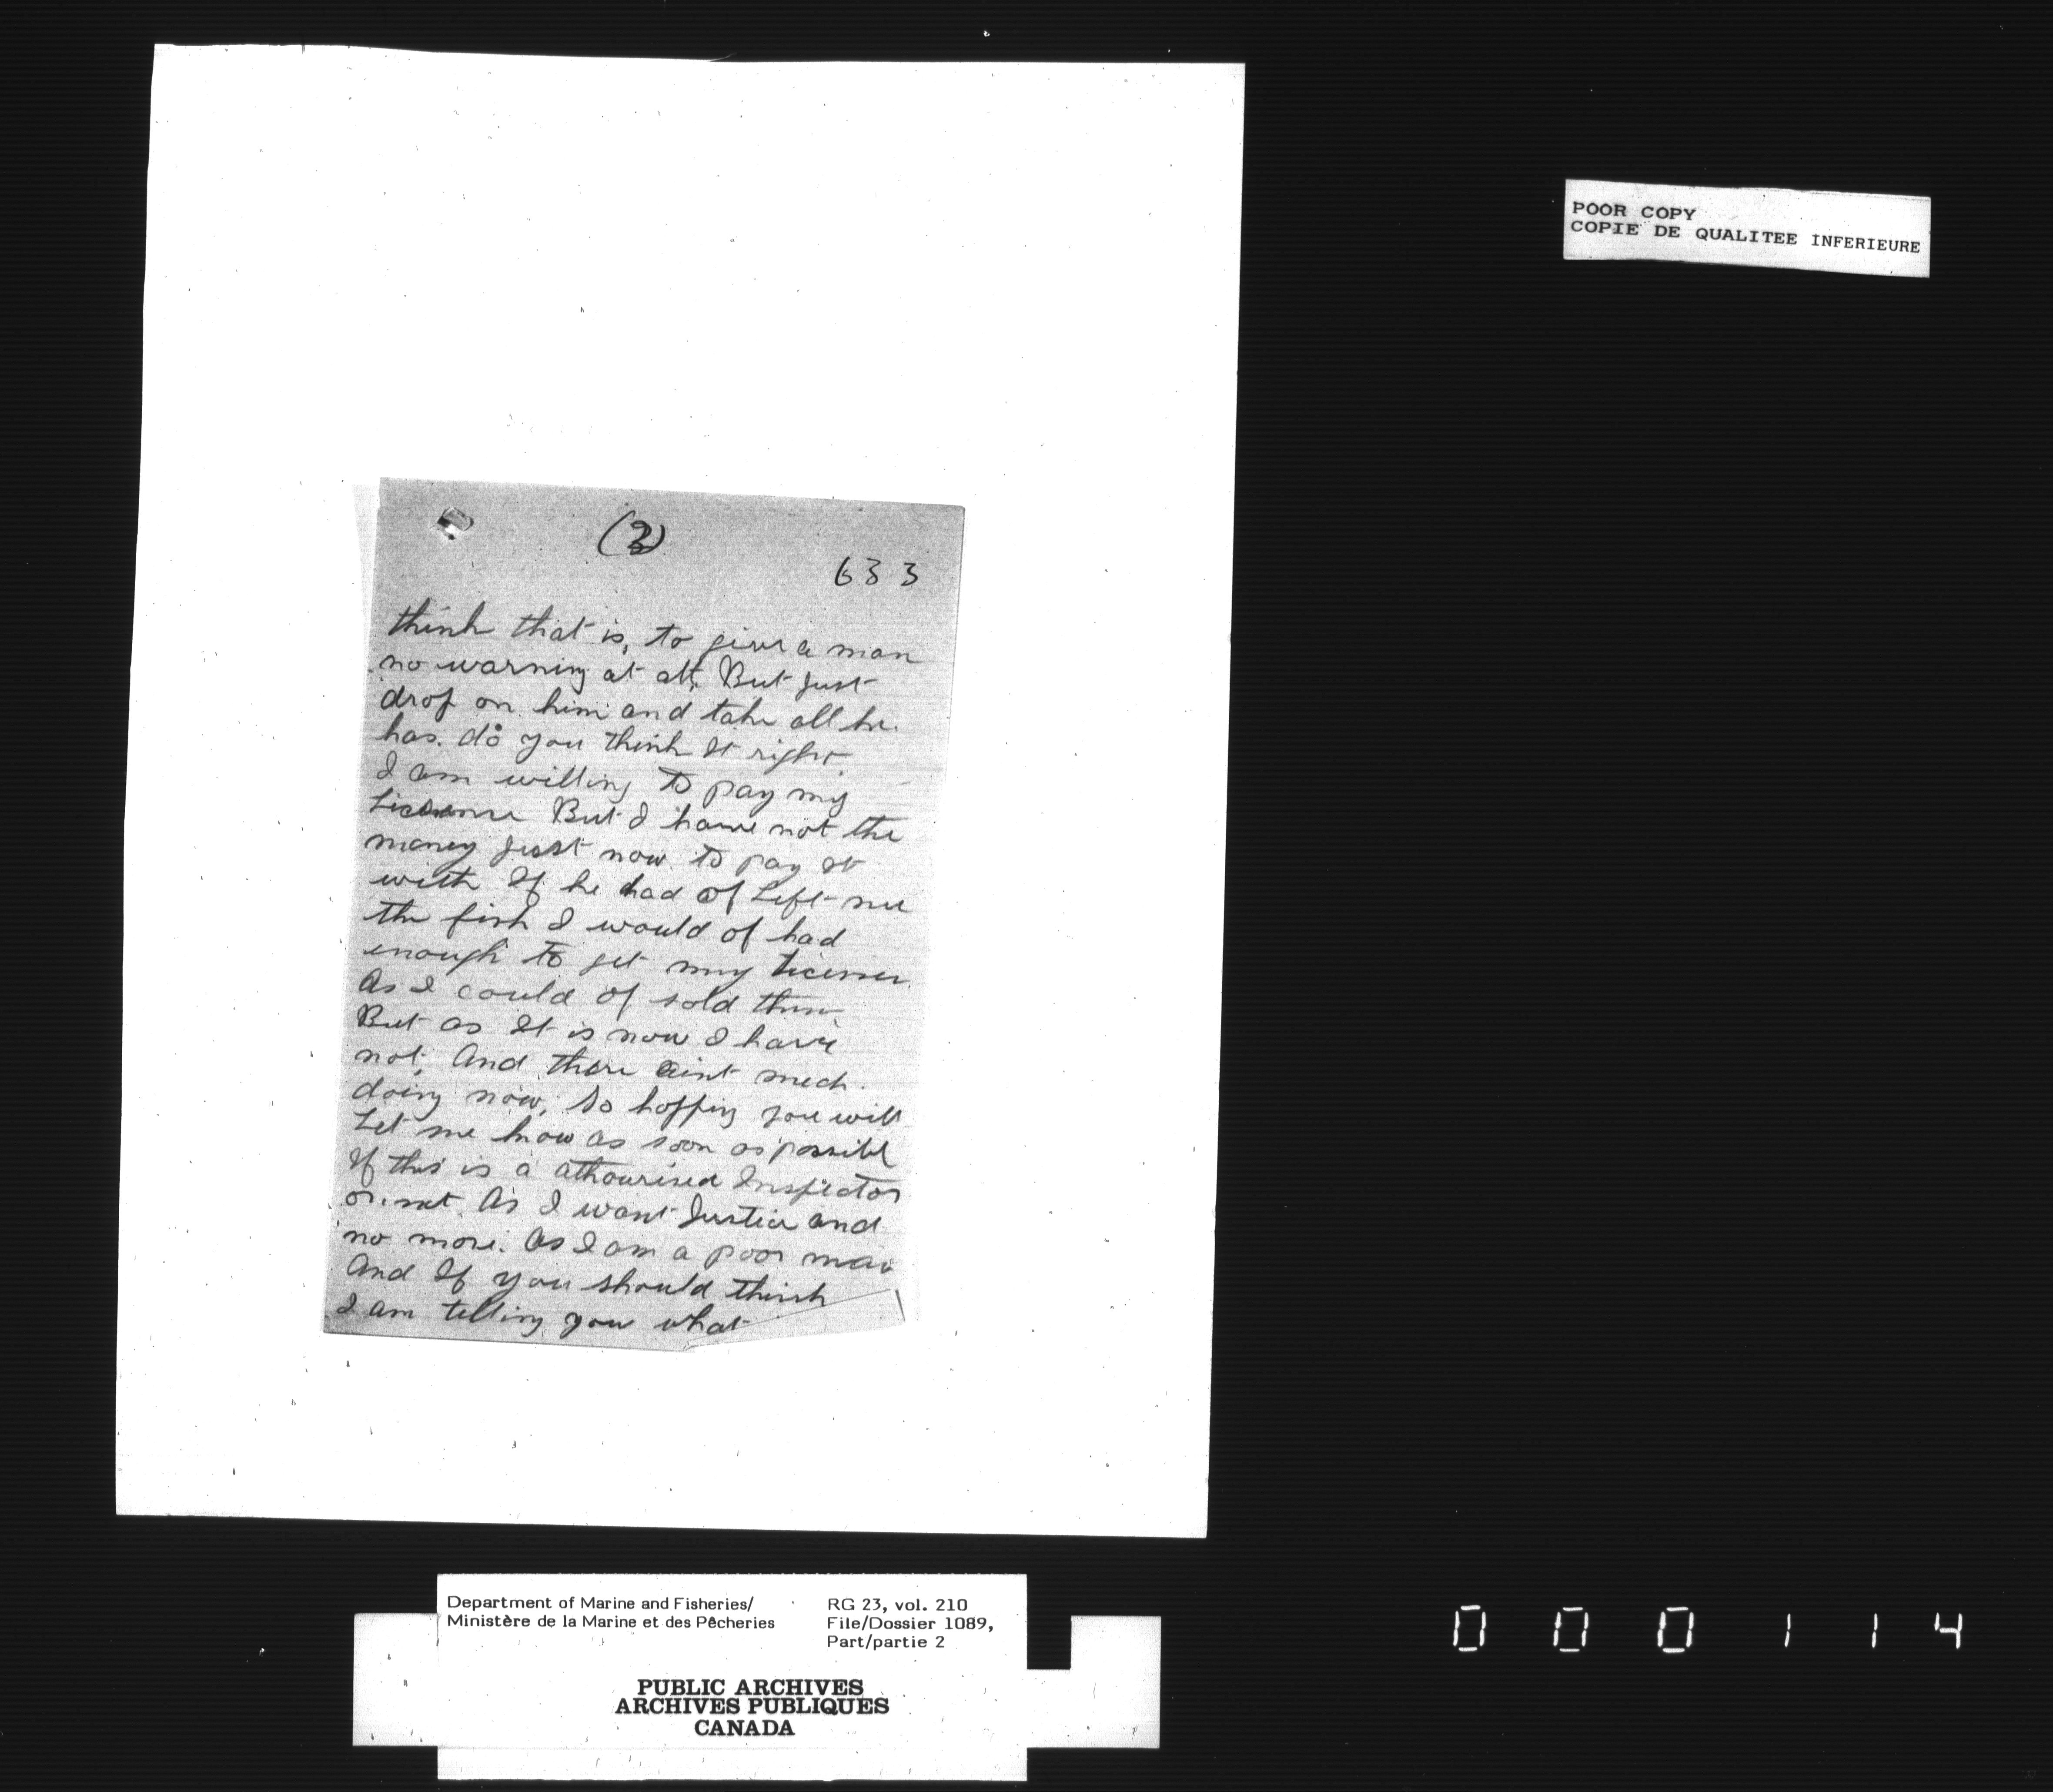 POOR COPY
COPIE DE QUALITEE INFERIEURE
(3)
633
think that is, to give a man
no warning at all, But just
drop on him and take all he
has. do you think It right.
I am willing to pay my
But I have not the
money just now to pay It
with If he had of Left me
the fish I would of had
enough to get my License
As I could of sold them
But as It is now I have
not, And there aint mech
doing now, So hopping you will
Let me know as soon as possibl
If this is a athourised Inspector
or not. As I want Justice and
no more. As I am a poor man
And If you should think
I am telling you what
Department of Marine and Fisheries/
Ministère de la Marine et des Pêcheries
RG 23, vol. 210
File/Dossier 1089,
Part/partie 2
PUBLIC ARCHIVES
ARCHIVES PUBLIQUES
CANADA
000114